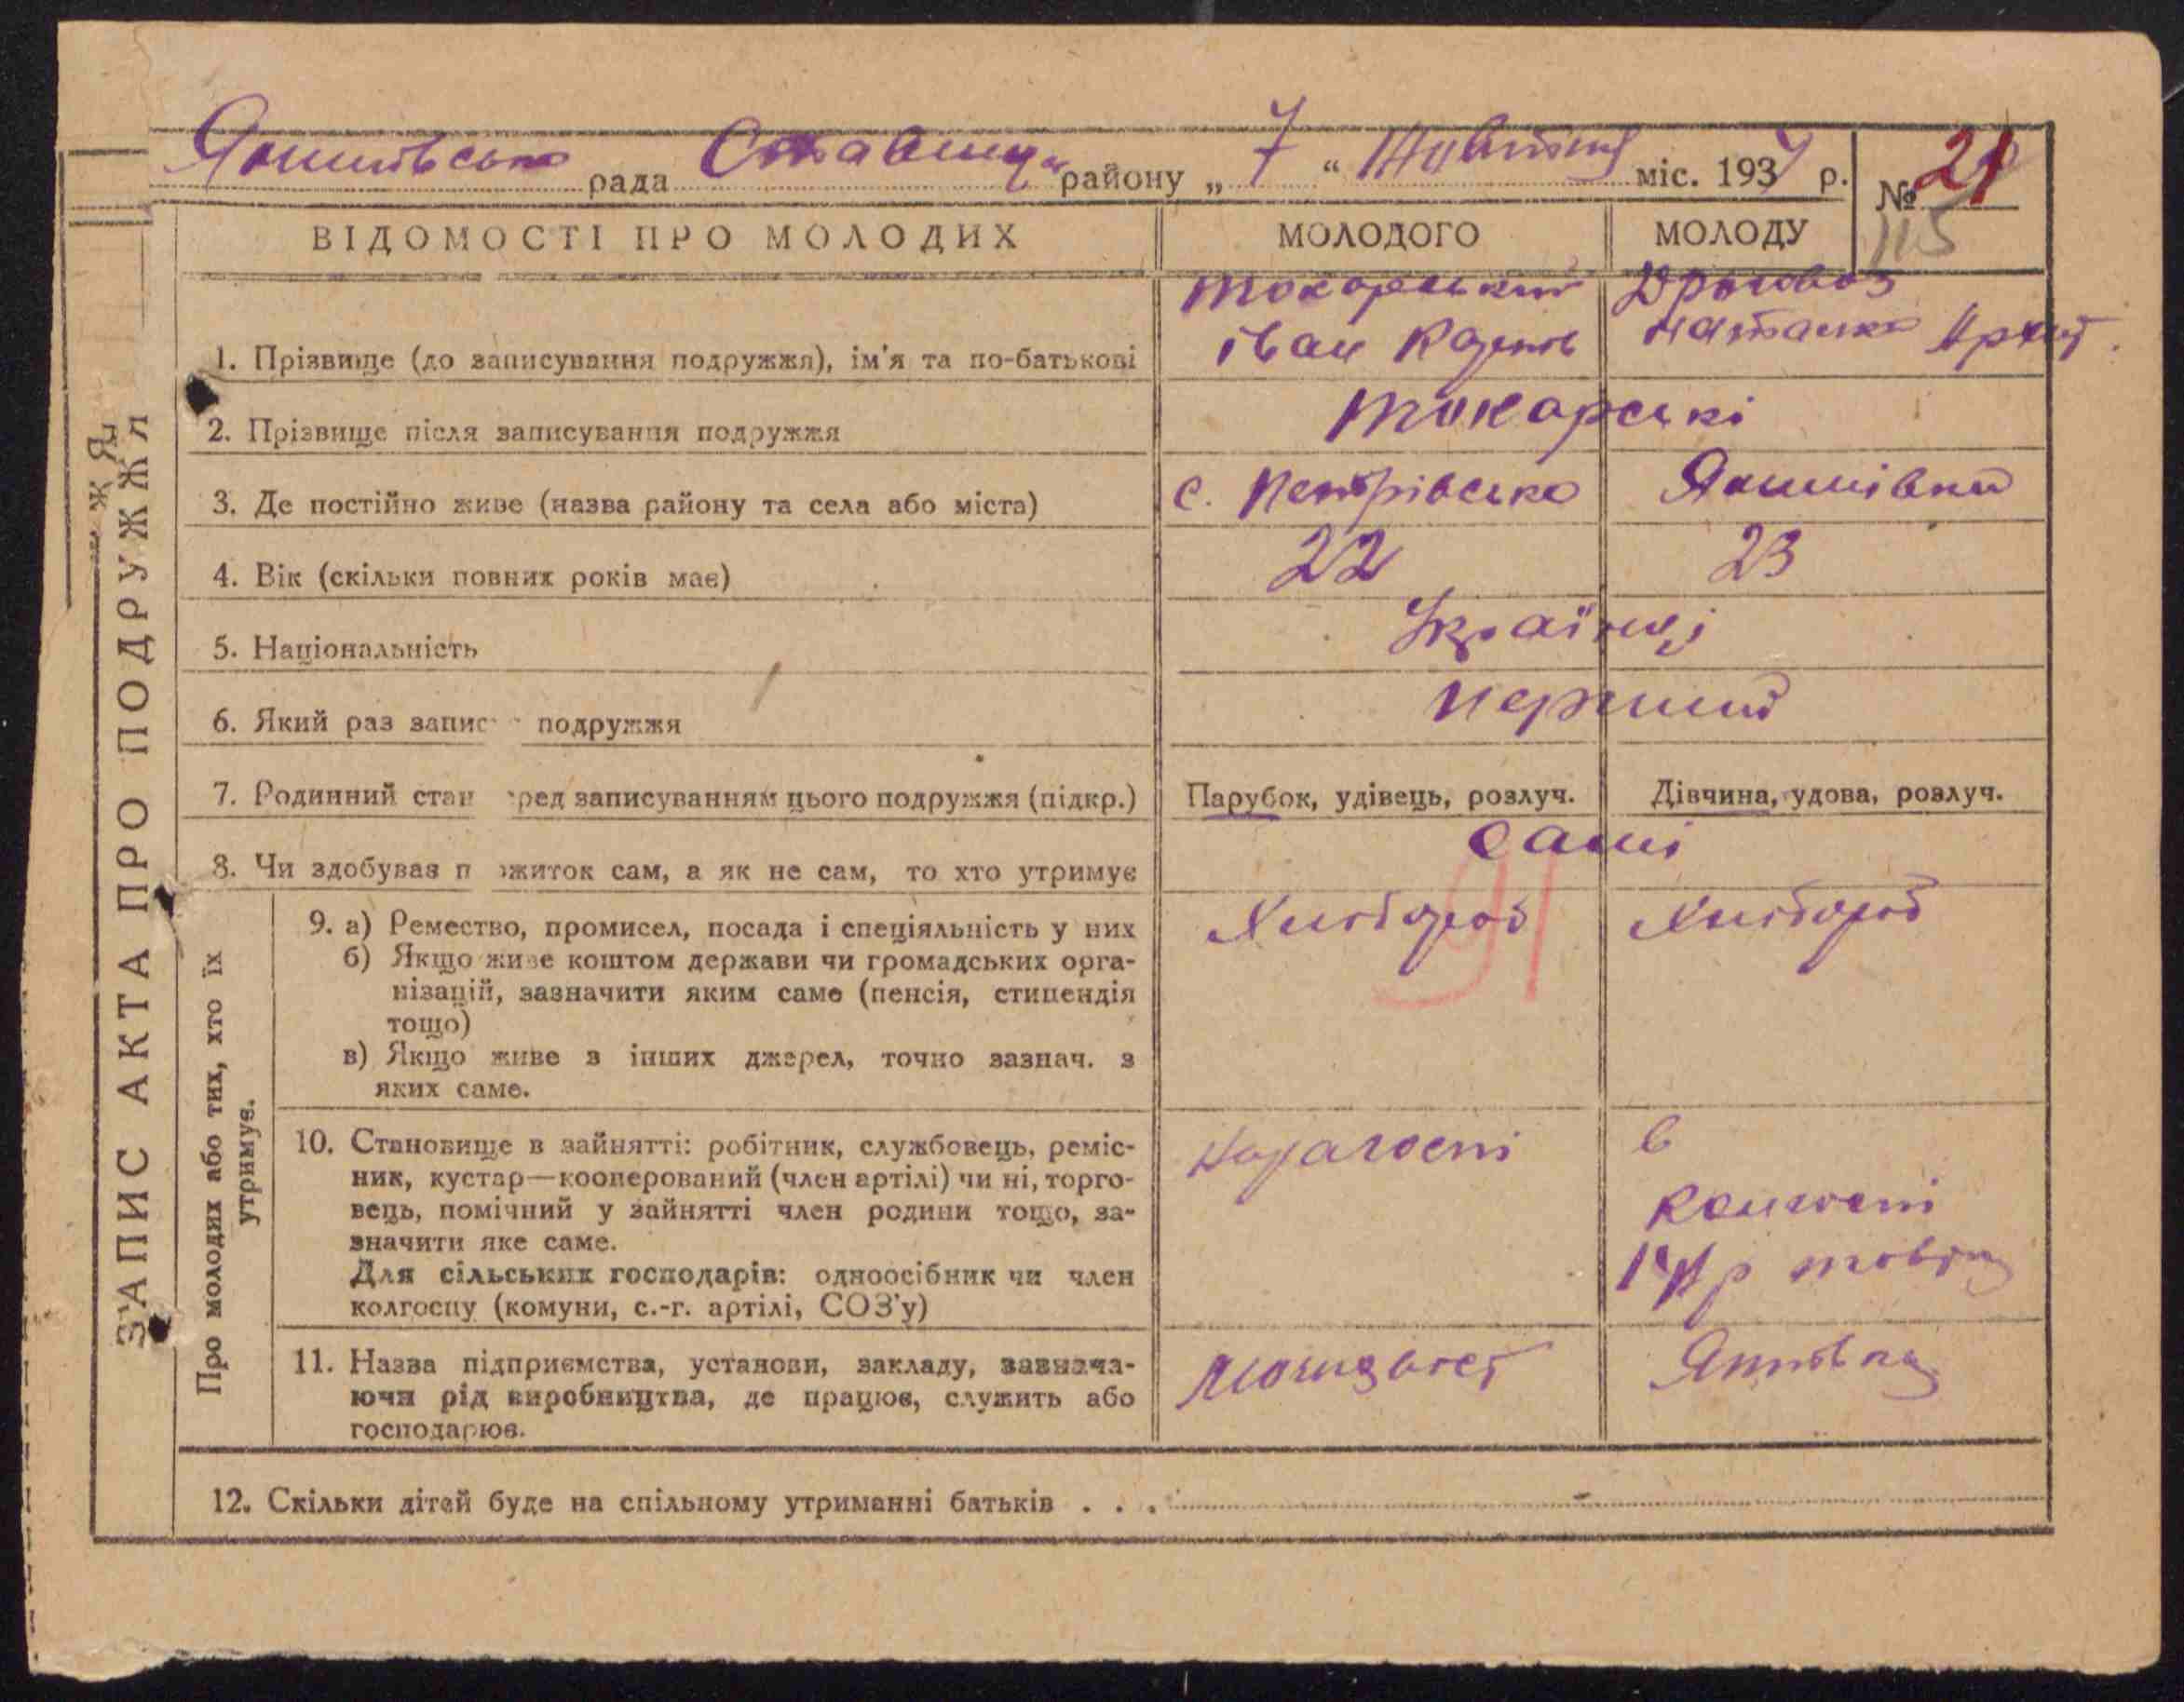 рада району „ 7 “ міс. 1937 р. № 21
115
ВІДОМОСТІ ПРО МОЛОДИХ МОЛОДОГО МОЛОДУ
Токарський
1. Прізвище (до записування подружжя), ім'я та по-батькові Іван
2. Прізвище після записування подружжя Токарські
3. Де постійно живе (назва району та села або міста) с. Петрівська Яшнівка
4. Вік (скільки повних років має) 22 23
5. Національність Українці
6. Який раз запис подружжя перший
7. Родинний стан ред записуванням цього подружжя (підкр.) Парубок, удівець, розлуч. Дівчина, удова, розлуч.
8. Чи здобував п житок сам, а як не сам, то хто утримує сами
91
ЗАПИС АКТА ПРО ПОДРУЖЖЯ
Про молодих або тих, хто їх
утримує.
9. а) Ремество, промисел, посада і спеціяльність у них Хлібороб Хлібороб
б) Якщо живе коштом держави чи громадських орга-
нізацій, зазначити яким саме (пенсія, стипендія
тощо)
в) Якщо живе з інших джерел, точно зазнач. з
яких саме.
10. Становище в зайнятті: робітник, службовець, реміс- в
ник, кустар—кооперований (член артілі) чи ні, торго-
вець, помічний у зайнятті член родини тощо, за- колгоспі
значити яке саме.
Для сільських господарів: одноосібник чи член
колгоспу (комуни, с.-г. артілі, СОЗ'у)
11. Назва підприємства, установи, закладу, зазнача-
ючи рід виробництва, де працює, служить або
господарює.
12. Скільки дітей буде на спільному утриманні батьків . . . -